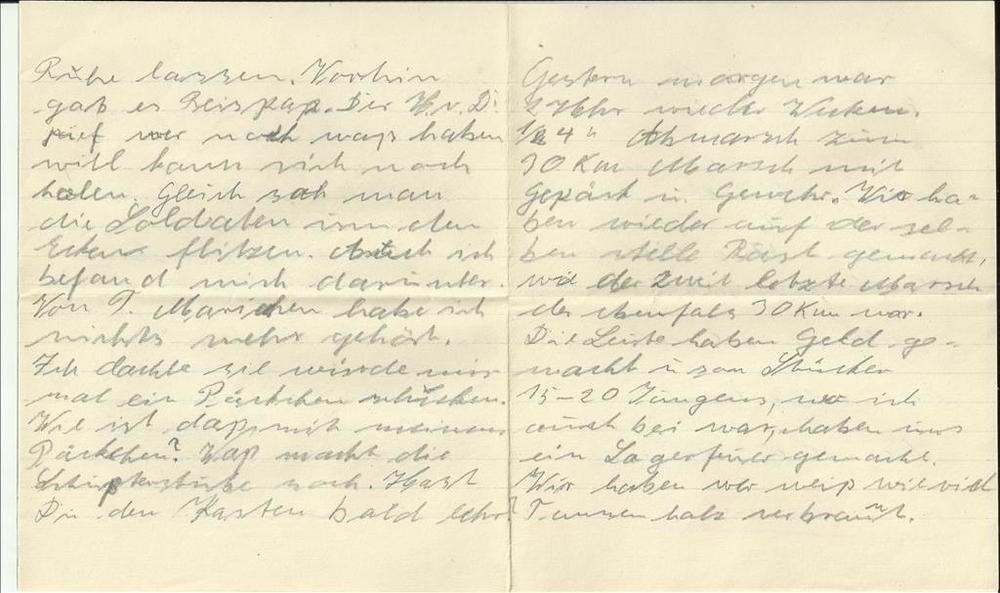 Ruhe lassen. Vorhin
gab es Reispap. Der U.v.D.
rief wer noch waß haben
will kann sich noch
holen. Gleich sah man
die Soldaten um den
Ecken flitzen. Auch ich
befand mich darunter.
Von T. Mariechen habe ich
nichts mehr gehört.
Ich dachte sie würde mir
mal ein Päckchen schicken.
Wie ist daß mit meinem
Päckchen? Waß macht die
noch. Hast
Du den Kasten bald leer?
Gestern morgen war
2 Uhr wieder Wecken.
1/2 4 " Abmarsch zum
30 Km Marsch mit
Gepäck u. Gewehr. Wir ha-
ben wieder auf der sel-
ben stelle Rast gemacht,
wie der zweit letzte Marsch
der ebenfals 30 Km war.
Die Leute haben Geld ge-
macht u so Stücker
15-20 Jungens, wo ich
auch bei war, haben uns
ein Lagerfeuer gemacht.
Wir haben wer weiß wieviel
Tannenholz verbraucht.